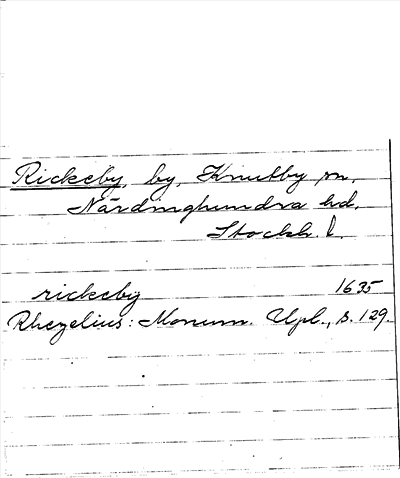 Rickeby, by, Knutby sn,
Närdinghundra hd,
Stockh l.
rickeby 1635
Rhezelius: Monum. Upl., s. 129.